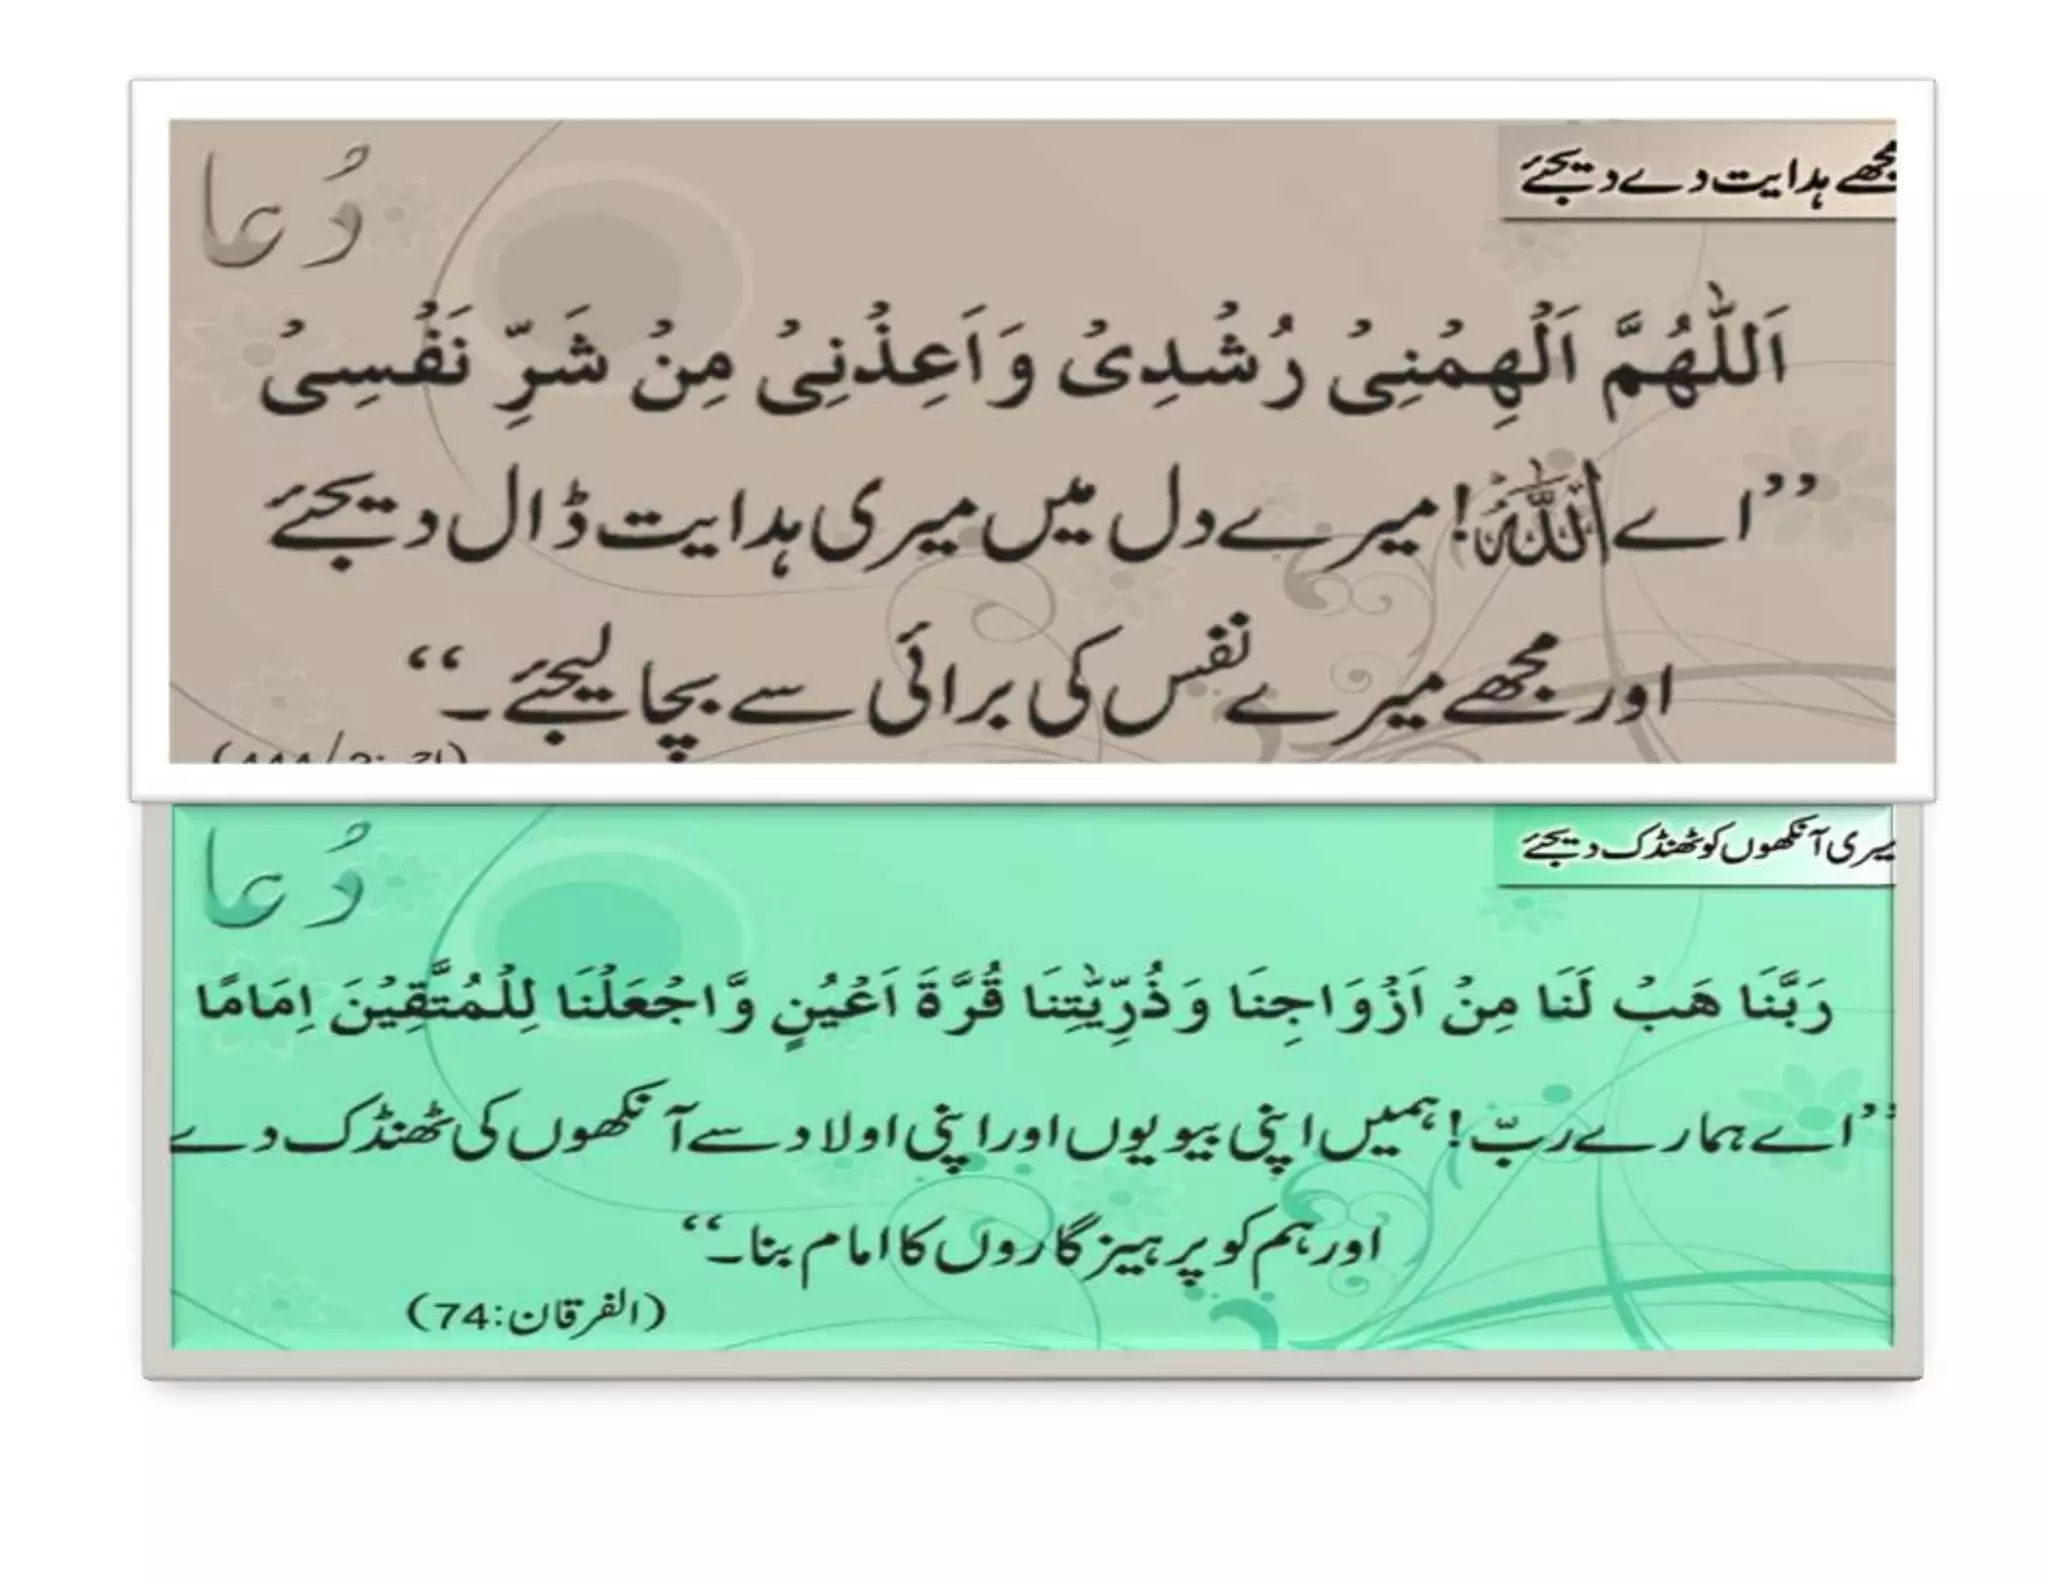 مجھے ہدایت دے دیجئے
دُعا
اَللّٰهُمَّ اَلْهِمْنِیْ رُشْدِیْ وَاَعِذْنِیْ مِنْ شَرِّ نَفْسِیْ
’’اے اللّٰہُ! میرے دل میں میری ہدایت ڈال دیجئے
اور مجھے میرے نفس کی برائی سے بچا لیجئے۔‘‘
میری آنکھوں کو ٹھنڈک دیجئے
دُعا
رَبَّنَا هَبْ لَنَا مِنْ اَزْوَاجِنَا وَذُرِّیّٰتِنَا قُرَّةَ اَعْیُنٍ وَّاجْعَلْنَا لِلْمُتَّقِیْنَ اِمَامًا
’’اے ہمارے ربّ! ہمیں اپنی بیویوں اور اپنی اولاد سے آنکھوں کی ٹھنڈک دے
اور ہم کو پرہیزگاروں کا امام بنا۔‘‘
(الفرقان:74)